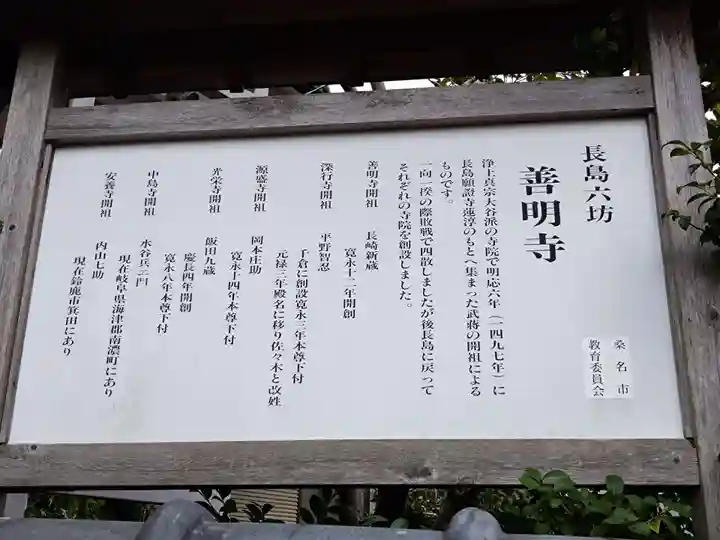 長島六坊
善明寺
桑名市
教育委員会
浄土真宗大谷派の寺院で明応六年(一四九七年)に
長島願證寺蓮淳のもとへ集まった武蒋の開祖による
ものです。
一向一揆の際敗戦で四散しましたが後長島に戻って
それぞれの寺院を創設しました。
善明寺開祖 長崎新蔵
寛永十二年開創
深行寺開祖 平野智忍
千倉に創設寛永三年本尊下付
元禄三年殿名に移り佐々木と改姓
源盛寺開祖 岡本庄助
寛永十四年本尊下付
光栄寺開祖 飯田九蔵
慶長四年開創
寛永八年本尊下付
中島寺開祖 水谷兵二門
現在岐阜県海津郡南濃町にあり
安養寺開祖 内山七助
現在鈴鹿市箕田にあり